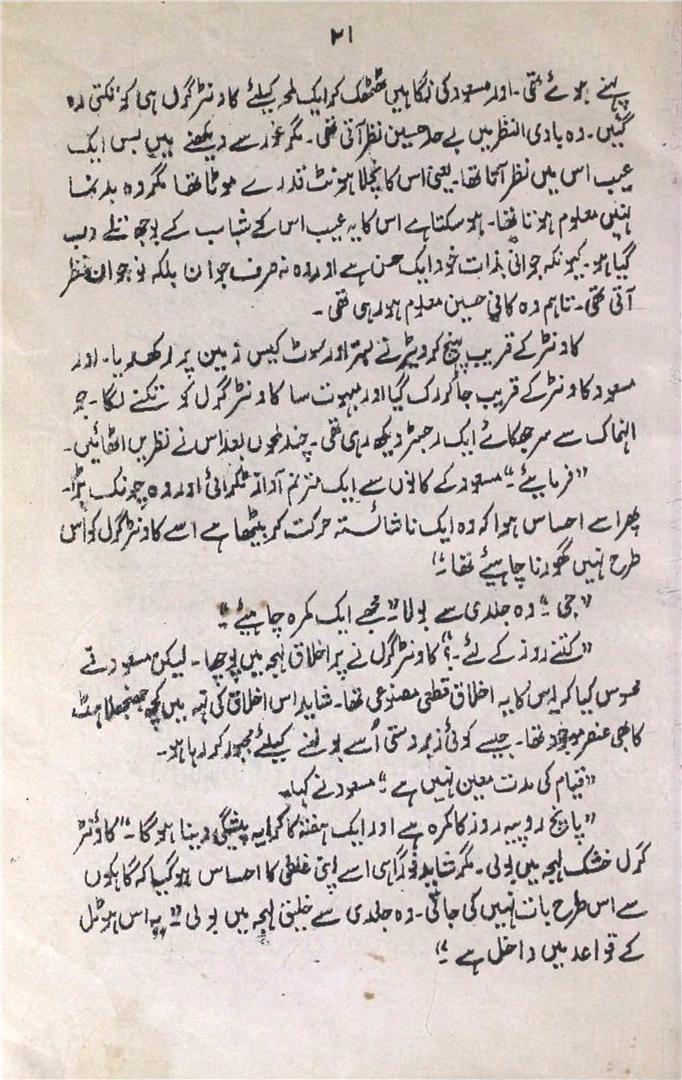 ۲۱
پہنے ہوئے تھی۔ اور مسعود کی نگاہیں ٹھٹھک کر ایک لمحہ کیلئے کاونٹر گرل ہی کو تکتی رہ
گئیں۔ وہ بادی النظر میں بے حد حسین نظر آتی تھی۔ مگر غور سے دیکھنے میں بس ایک
عیب اس میں نظر آتا تھا۔ یعنی اس کا نچلا ہونٹ قدرے موٹا تھا مگر وہ بدنما
نہیں معلوم ہوتا تھا۔ ہو سکتا ہے اس کا یہ عیب اس کے شباب کے بوجھ تلے دب
گیا ہو۔ کیونکہ جوانی بذات خود ایک حسن ہے اور وہ نہ صرف جوان بلکہ نوجوان نظر
آتی تھی۔ تاہم وہ کافی حسین معلوم ہو رہی تھی۔
کاونٹر کے قریب پہنچ کر ویٹر نے بستر اور سوٹ کیس زمین پر رکھ دیا۔ اور
مسعود کاونٹر کے قریب جا کر رک گیا اور مبہوت سا کاونٹر گرل کو تکنے لگا۔ جو
انہماک سے سر جھکائے ایک رجسٹر دیکھ رہی تھی۔ چند لمحوں بعد اس نے نظریں اٹھائیں۔
"فرمایئے۔" مسعود کے کانوں سے ایک مترنم آواز ٹکرائی اور وہ چونک پڑا۔
پھر اسے احساس ہوا کہ وہ ایک ناشائستہ حرکت کر بیٹھا ہے اسے کاونٹر گرل کو اُس
طرح نہیں گھورنا چاہیئے تھا۔"
"جی۔" وہ جلدی سے بولا۔ "مجھے ایک کمرہ چاہیئے۔"
"کتنے روز کے لئے۔؟" کاونٹر گرل نے پر اخلاق لہجہ میں پوچھا۔ لیکن مسعود نے
محسوس کیا کہ اس کا یہ اخلاق قطعی مصنوعی تھا۔ شاید اس اخلاق کی تہہ میں کچھ جھنجھلاہٹ
کا بھی عنصر موجود تھا۔ جیسے کوئی زبردستی اُسے بولنے کیلئے مجبور کر رہا ہو۔
"قیام کی مدت معین نہیں ہے۔" مسعود نے کہا۔
"پانچ روپیہ روز کا کمرہ ہے اور ایک ہفتہ کا کرایہ پیشگی دینا ہوگا۔" کاونٹر
گرل خشک لہجہ میں بولی۔ مگر شاید فوراً ہی اسے اپنی غلطی کا احساس ہو گیا کہ گاہکوں
سے اس طرح بات نہیں کی جاتی۔ وہ جلدی سے خلیق لہجہ میں بولی "یہ اس ہوٹل
کے قواعد میں داخل ہے۔"